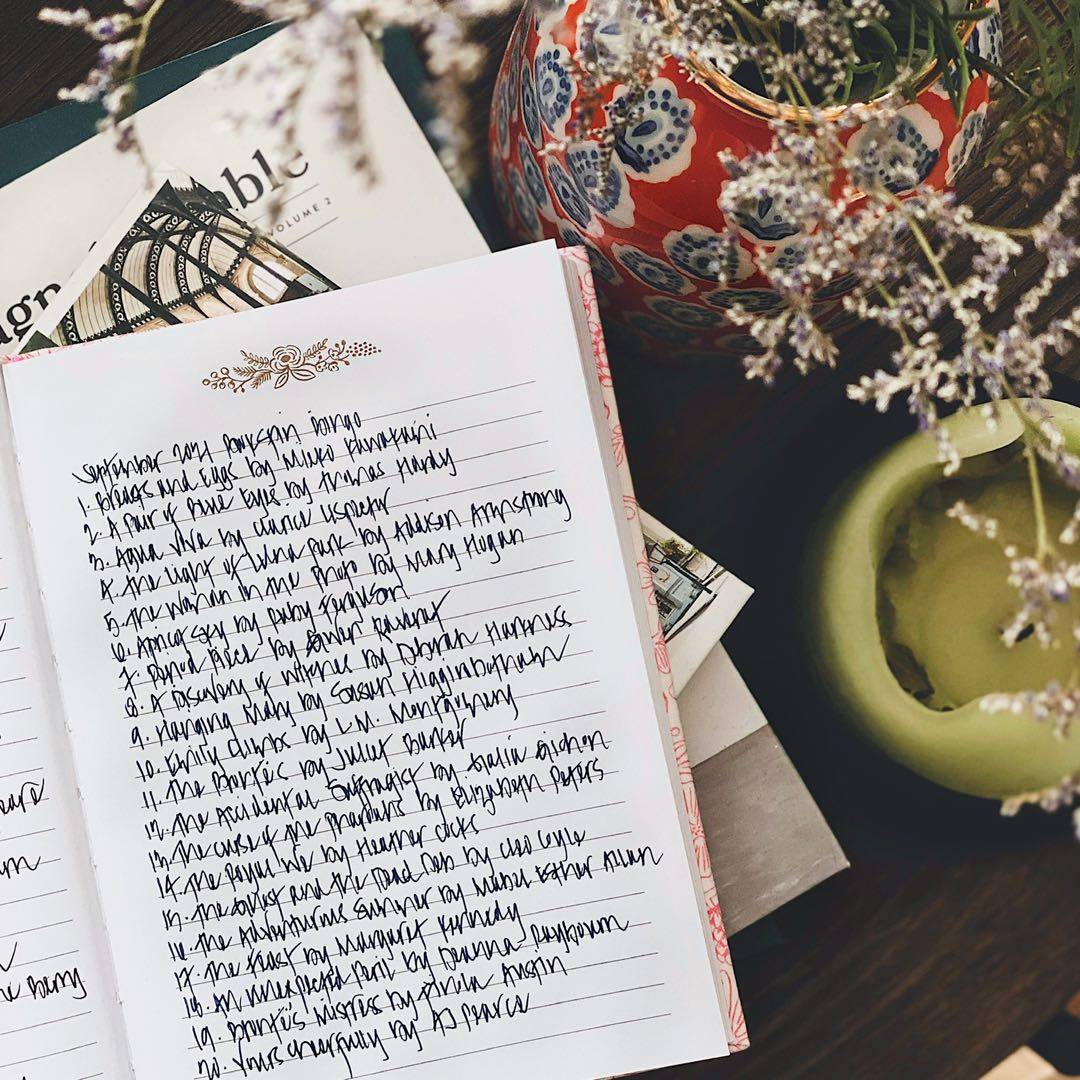 able
VOLUME 2
ign
September 2021 Bookspin Bingo
1. Breasts and Eggs by Mieko Kawakami
2. A Pair of Blue Eyes by Thomas Hardy
3. Agua Viva by Clarice Lispector
4. The Light of Luna Park by Addison Armstrong
5. The Woman in the Photo by Mary Hogan
6. Apricot Sky by Ruby Ferguson
7. by Gwen Raverat
8. A Discovery of Witches by Deborah Harkness
9. Hanging Mary by Susan Higginbotham
10. Emily Climbs by L.M. Montgomery
11. The Brontës by Juliet Barker
12. The Accidental Suffragist by Galia Gichon
13. The Curse of the Pharaohs by Elizabeth Peters
14. The Royal We by Heather Cocks
15. The Ghost and the Dead Deb by Cleo Coyle
16. The Adventurous Summer by Mabel Esther Allan
17. The Feast by Margaret Kennedy
18. An Unexpected Peril by Deanna Raybourn
19. Brontë's Mistress by Finola Austin
20. Yours Cheerfully by AJ Pearce